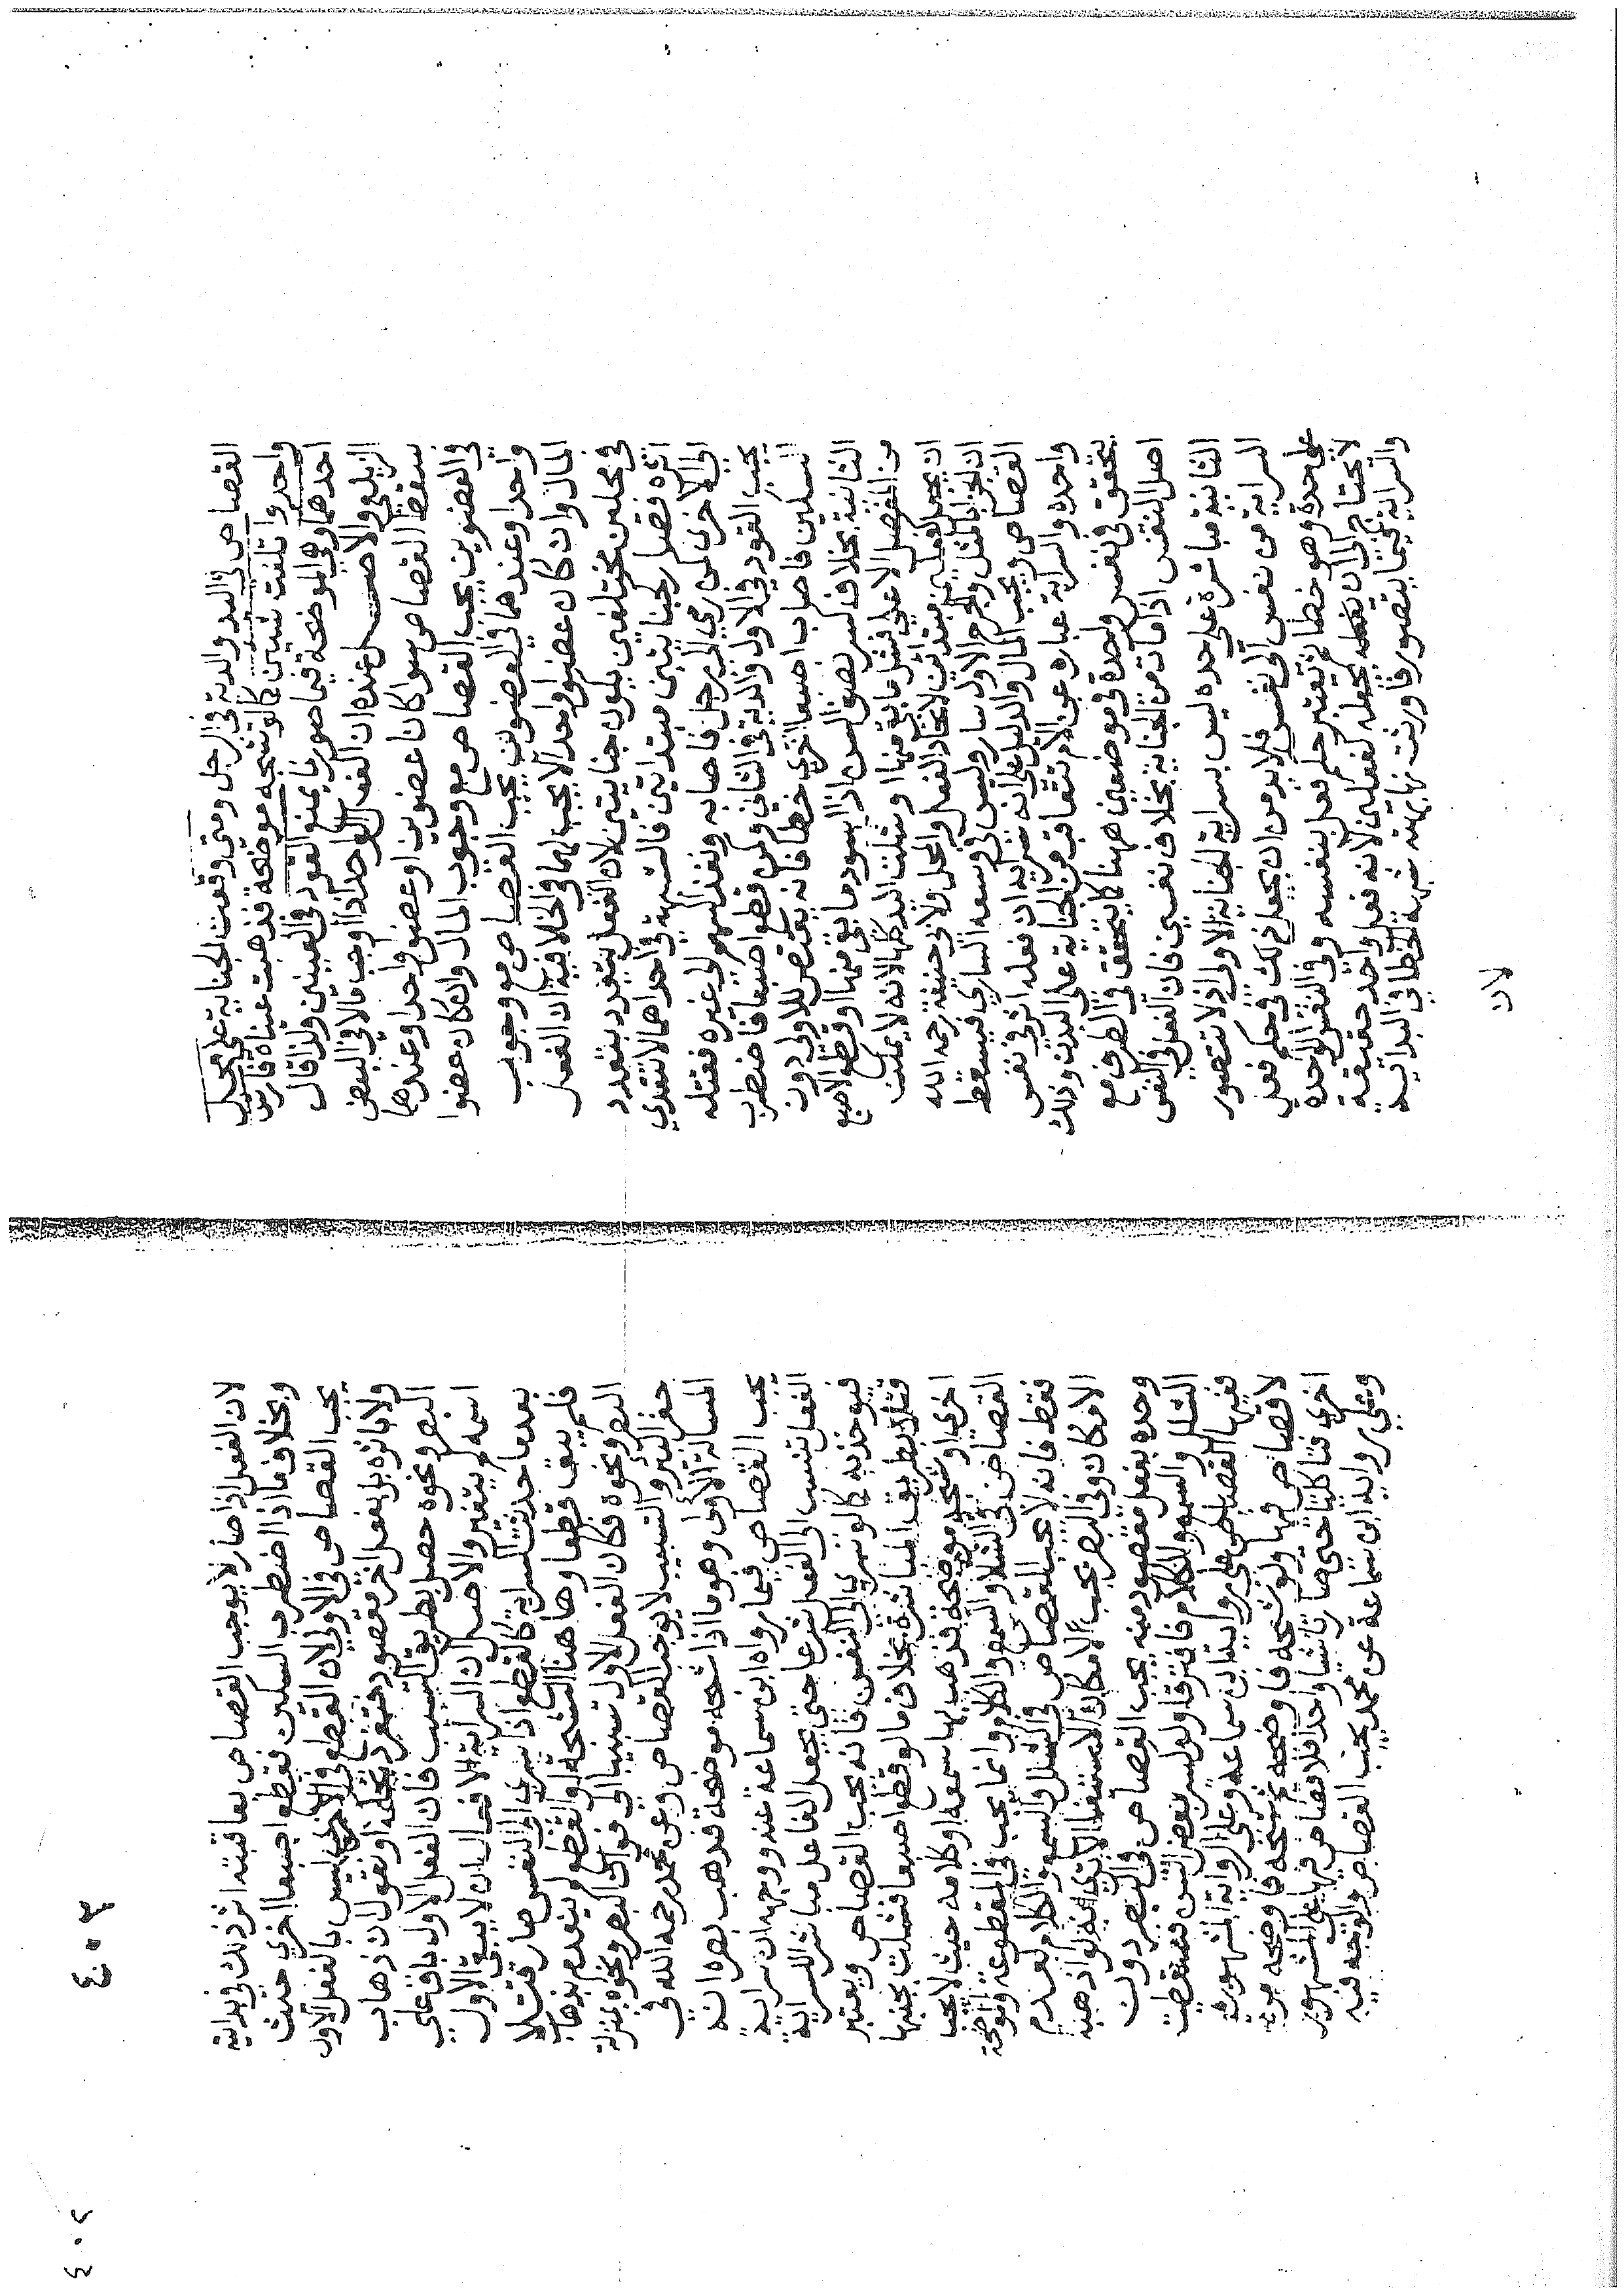 القصاص في اليد والدية في الرجل ومتى وقعت الجناية على محل
واحد واتلفت شيئين كما لو شجه موضحة فذهبت عيناه فارش
احدهما وهي الموضحة فيما صور نا يمنع القود في العينين ولذا قال
الزيلعي والاصل عنده ان الفعل الواحد اذا اوجب مالا في البعض
سقط القصاص سوا كان عضوين او عضوا واحدا وعندهما
في العضوين يجب القصاص مع وجوب المال وان كان عضوا
واحدا وعندهما في العضوين يجب القصاص مع وجوب
المال وان كان عضوا واحدا لا يجب لهما في الخلافية ان الفعل
في محلين مختلفين يكون جنايتين لان الفعل يتعدد بتعدد
اثره فصار كجنايتين مبتداتين فالشبهة في احداهما لا تتعدي
الى الاخرى كمن رمى الى رجل فاصابه ونفذ السهم الى غيره فقتله
يجب القود في الاول والدية في الثاني وكمن قطع اصبعا فاضطرب
السكين فاصاب اصبعا اخرى خطا فانه يقتص للاولى دون
الثانية بخلاف كسر بعض السن اذا اسود ما بقى منها او قطع الاصبع
من المفصل الاعلى فشل ما بقى منها او شلت اليد كلها لانه لا يمكن
ان يجعل فعلين مبتداين لاتحاد الفعل والمحل ولابي حنيفة رحمه الله
ان الجزا بالمثل والجرح الاول سار وليس في وسعه الساري فيسقط
القصاص ويجب المال والدليل على انه سراية ان فعله اثر في نفس
واحدة والسراية عبارة عن الام تتعاقب من الجناية على البدن وذلك
يتحقق في نفس واحدة في موضعين منها كما يتحقق في الطرف مع
اصل النفس اذا مات من الجناية بخلاف نفسين فان الفعل في النفس
الثانية مباشرة على حده ليس بسراية الجناية الاولى اذ لا تتصور
السراية من نفس الى نفس فلا بد من ان يجعل ذلك في حكم فعل
على حدة وهو خطا فيعتبر حكم فعل بنفسه وفي النفس الواحدة
لا يحتاج الى ان نجعله كفعلين لانه فعل واحد حقيقة
والسراية فيها تتصور فاورثت نهايته شبهة الخطا في البداية
لان
٤٠٣
لان الفعل اذا صار لا يوجب القصاص بعاقبته اثر ذلك في بدايته
وبخلاف ما اذا اضطرب السكين فقطع اصبعا اخرى حيث
يجب القصاص في الاولى لان القطع في الاخرى ليس بالفعل الاول
ولا باثره بل بفعل اخر مقصود فتفرد بحكمه او نقول ان ذهاب
البصر ونحوه حصل بطريق التسبب فان الفعل الاول باق على
اسمه لم يتغير والاصل ان السراية الافعال ان لا يبقى الاول
بعد ما حدثت السراية كالقطع اذا سرى الى النفس صار قتلا
فلم يبق قطعا وها هنا الشجة او القطع لم ينعدم بذهاب
البصر ونحوه فكان الفعل الاول تسبيبا الى فوات البصر ونحوه بمنزلة
حفر البير والتسبيب لا يوجب القصاص وعن محمد رحمه الله في
المسالة الاولى وهو ما اذا شجه موضحة فذهب بصره انه
يجب القصاص فيما رواه ابن سماعة عنه ووجهه ان سراية
الفعل تنسب الى الفعل شرعا حتى يجعل الفاعل مباشرا للسراية
فيوخذ به كما لو سرى الى النفس فانه يجب القصاص ويعتبر
قتلا بطريق المباشرة بخلاف ما لو قطع اصبعا فشلت بجنبها
اخرى او شجه موضحة فذهب بها سمعه او كلامه حيث لا يجب
القصاص في الشلل والسمع والكلام وانما يجب في المقطوعة والموضحة
فقط فانه لا يجب القصاص في الشلل والسمع والكلام لعدم
الامكان وفي البصر يجب لامكان الاستيفاء الا ترى انه لو اذهبه
وحده بفعل مقصود منه يجب القصاص في البصر دون
الشلل والسمع والكلام فافترقا ولو كسر بعض السن فسقطت
ففيها القصاص على رواية ابن سماعه وعلى الرواية المشهورة
لا قصاص فيها ولو شجه فاوضحه ثم شجه فاوضحه مرة
اخرى فتاكلتا حتى صارتا شيا واحدا فلا قصاص فيهما على المشهور
وعلى رواية ابن سماعة عن محمد يجب القصاص والوجه فيه
٤٠٢